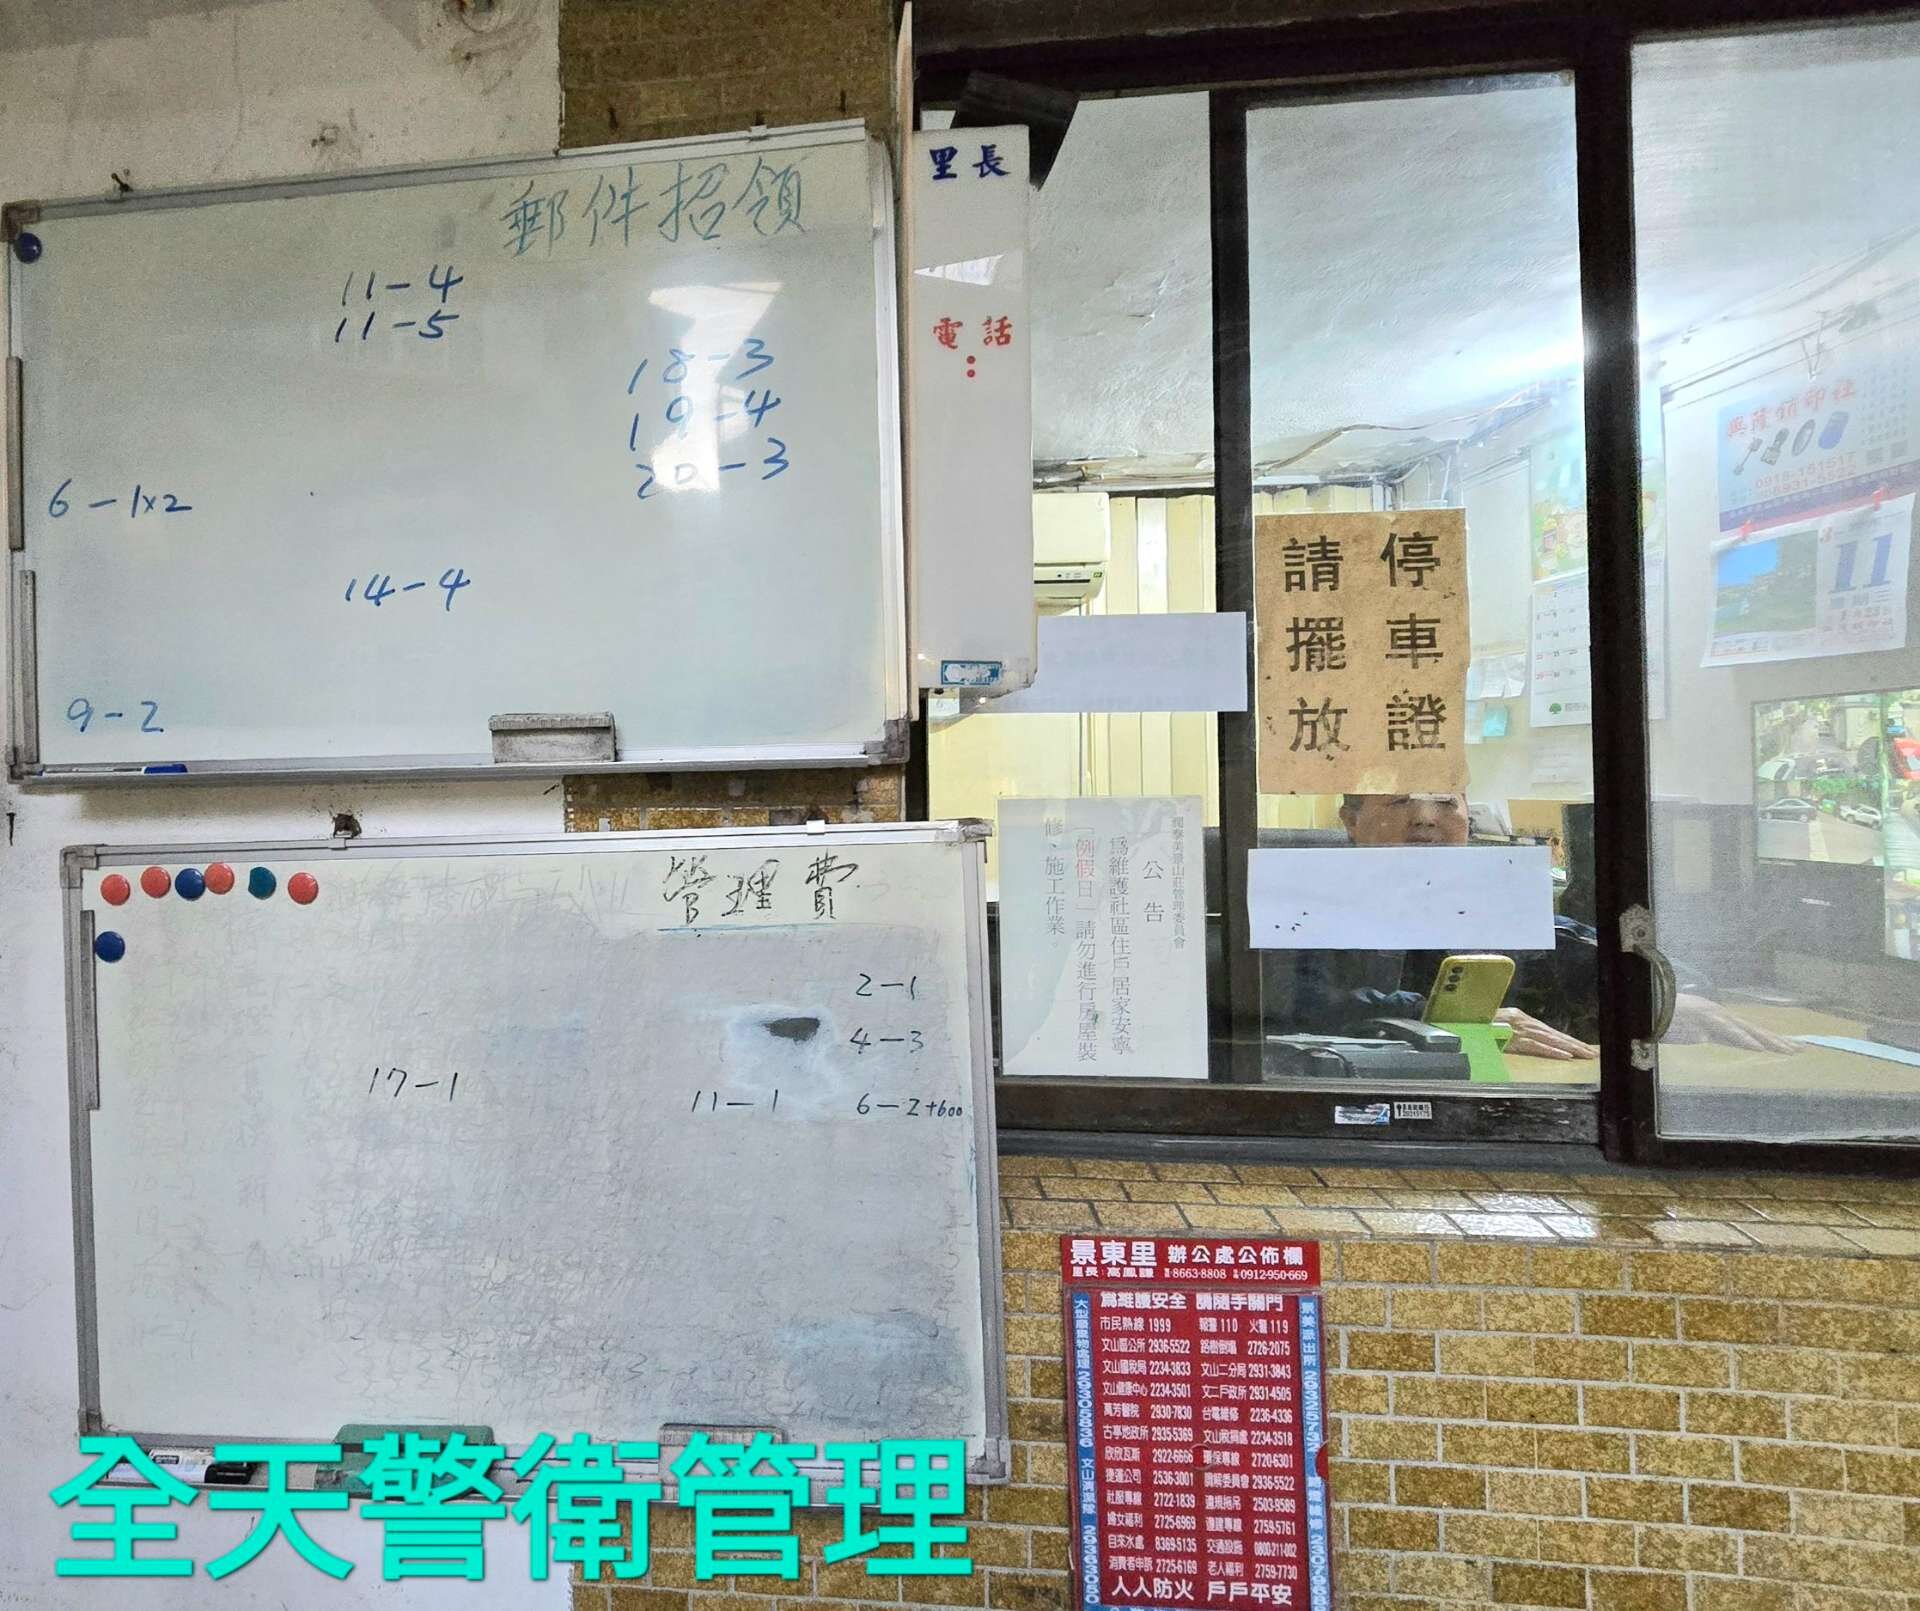 郵件招領
11-4
11-5
18-3
19-4
20-3
6-1x2
14-4
9-2
管理費
2-1
4-3
17-1
11-1
6-2+600
里長
電話：
停車證
請擺放
公告
為維護社區住戶居家安寧
「例假日」請勿進行房屋裝
修、施工作業。
興隆鎖印社
11
景東里 辦公處公佈欄
里長：高鳳謙 8663-8808 0912-950-669
為維護安全 請隨手關門
市民熱線 1999 報警 110 火警 119
文山區公所 2936-5522 路樹倒塌 2726-2075
文山國稅局 2234-3833 文山二分局 2931-3843
文山健康中心 2234-3501 文二戶政所 2931-4505
萬芳醫院 2930-7830 台電維修 2236-4336
古亭地政所 2935-5369 文山稅捐處 2234-3518
欣欣瓦斯 2922-6666 環保專線 2720-6301
捷運公司 2536-3001 調解委員會 2936-5522
社服專線 2722-1839 違規拖吊 2503-9589
婦女福利 2725-6969 違建專線 2759-5761
自來水處 8369-5135 交通設施 0800-211-002
消費者申訴 2725-6169 老人福利 2759-7730
人人防火 戶戶平安
大型廢棄物處理 29305836 文山清潔隊 29363080
景美派出所 29325732
全天警衛管理